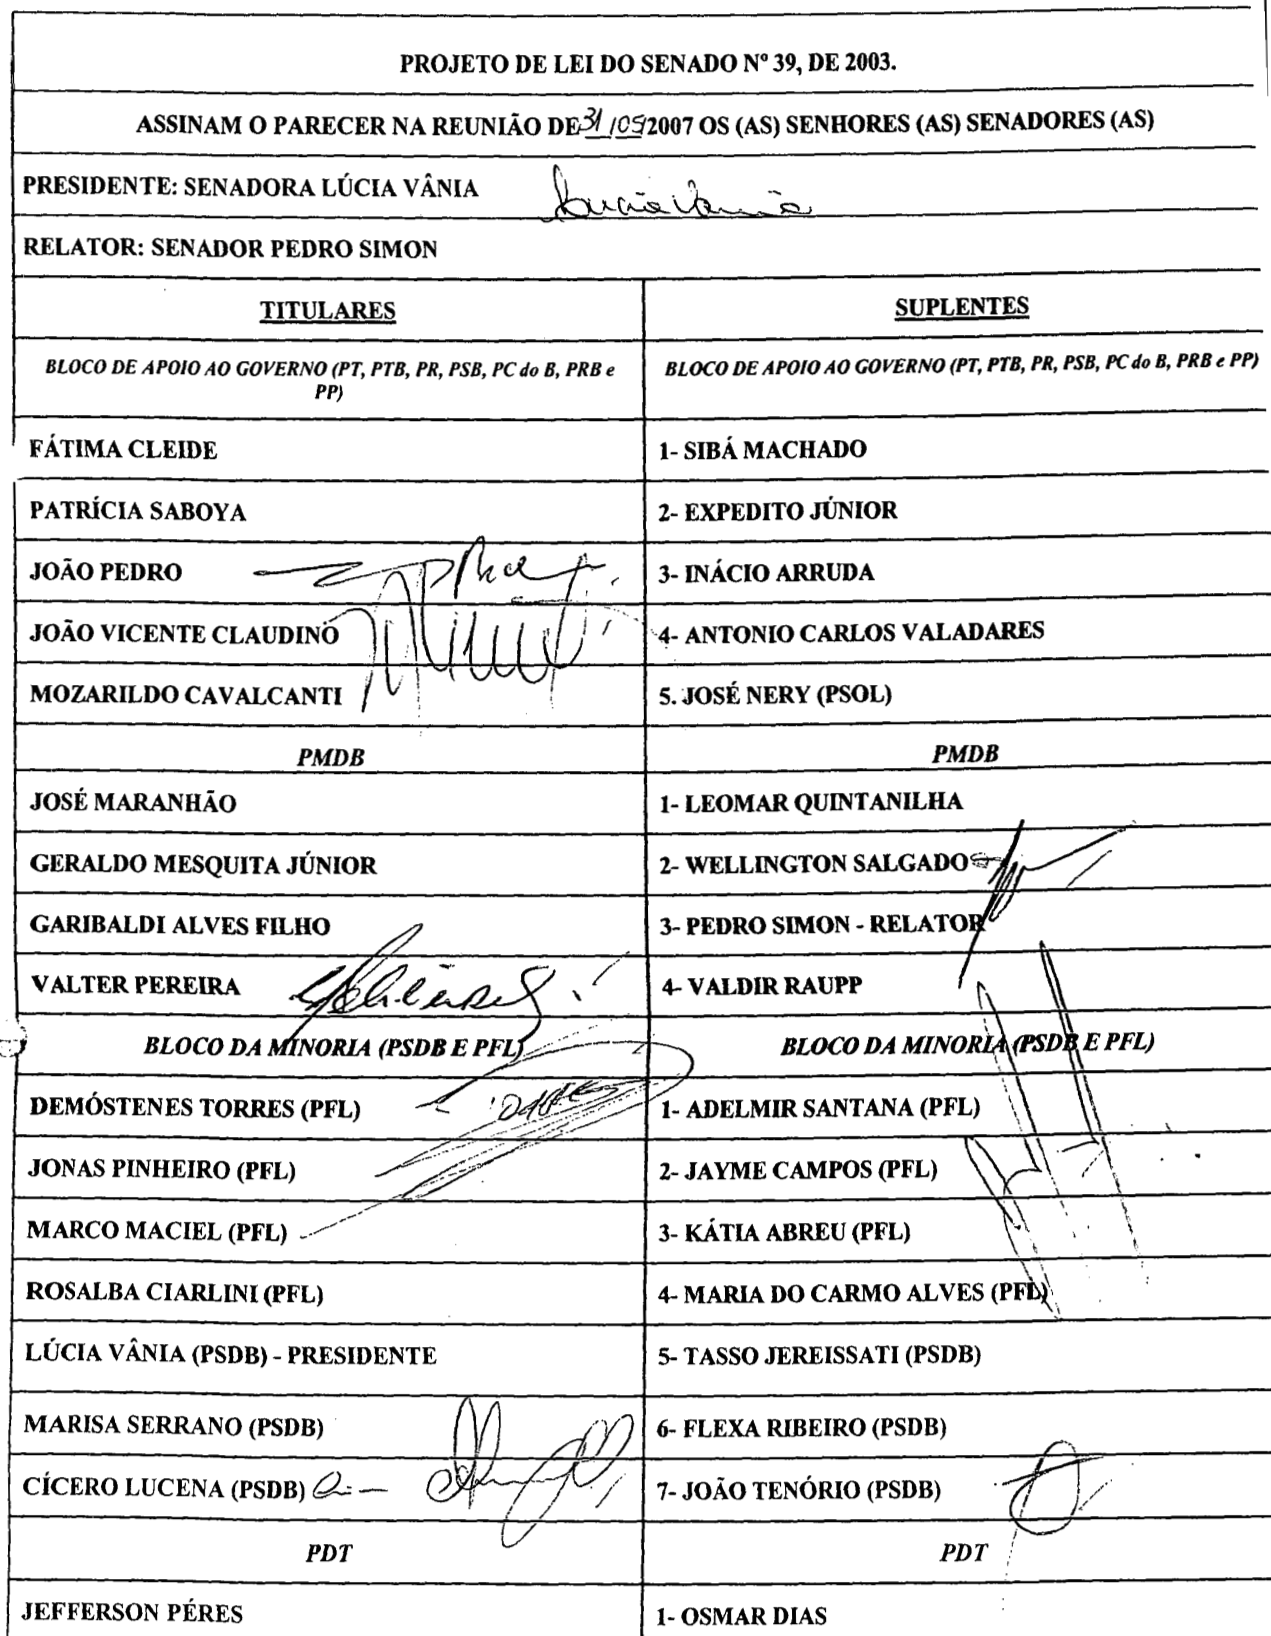 PROJETO DE LEI DO SENADO Nº 39, DE 2003.
ASSINAM O PARECER NA REUNIÃO DE 31/05/2007 OS (AS) SENHORES (AS) SENADORES (AS)
PRESIDENTE: SENADORA LÚCIA VÂNIA Lucia Vania
RELATOR: SENADOR PEDRO SIMON
TITULARES SUPLENTES
BLOCO DE APOIO AO GOVERNO (PT, PTB, PR, PSB, PC do B, PRB e PP) BLOCO DE APOIO AO GOVERNO (PT, PTB, PR, PSB, PC do B, PRB e PP)
FÁTIMA CLEIDE 1- SIBÁ MACHADO
PATRÍCIA SABOYA 2- EXPEDITO JÚNIOR
JOÃO PEDRO 3- INÁCIO ARRUDA
JOÃO VICENTE CLAUDINO 4- ANTONIO CARLOS VALADARES
MOZARILDO CAVALCANTI 5. JOSÉ NERY (PSOL)
PMDB PMDB
JOSÉ MARANHÃO 1- LEOMAR QUINTANILHA
GERALDO MESQUITA JÚNIOR 2- WELLINGTON SALGADO
GARIBALDI ALVES FILHO 3- PEDRO SIMON - RELATOR
VALTER PEREIRA 4- VALDIR RAUPP
BLOCO DA MINORIA (PSDB E PFL) BLOCO DA MINORIA (PSDB E PFL)
DEMÓSTENES TORRES (PFL) 1- ADELMIR SANTANA (PFL)
JONAS PINHEIRO (PFL) 2- JAYME CAMPOS (PFL)
MARCO MACIEL (PFL) 3- KÁTIA ABREU (PFL)
ROSALBA CIARLINI (PFL) 4- MARIA DO CARMO ALVES (PFL)
LÚCIA VÂNIA (PSDB) - PRESIDENTE 5- TASSO JEREISSATI (PSDB)
MARISA SERRANO (PSDB) 6- FLEXA RIBEIRO (PSDB)
CÍCERO LUCENA (PSDB) 7- JOÃO TENÓRIO (PSDB)
PDT PDT
JEFFERSON PÉRES 1- OSMAR DIAS